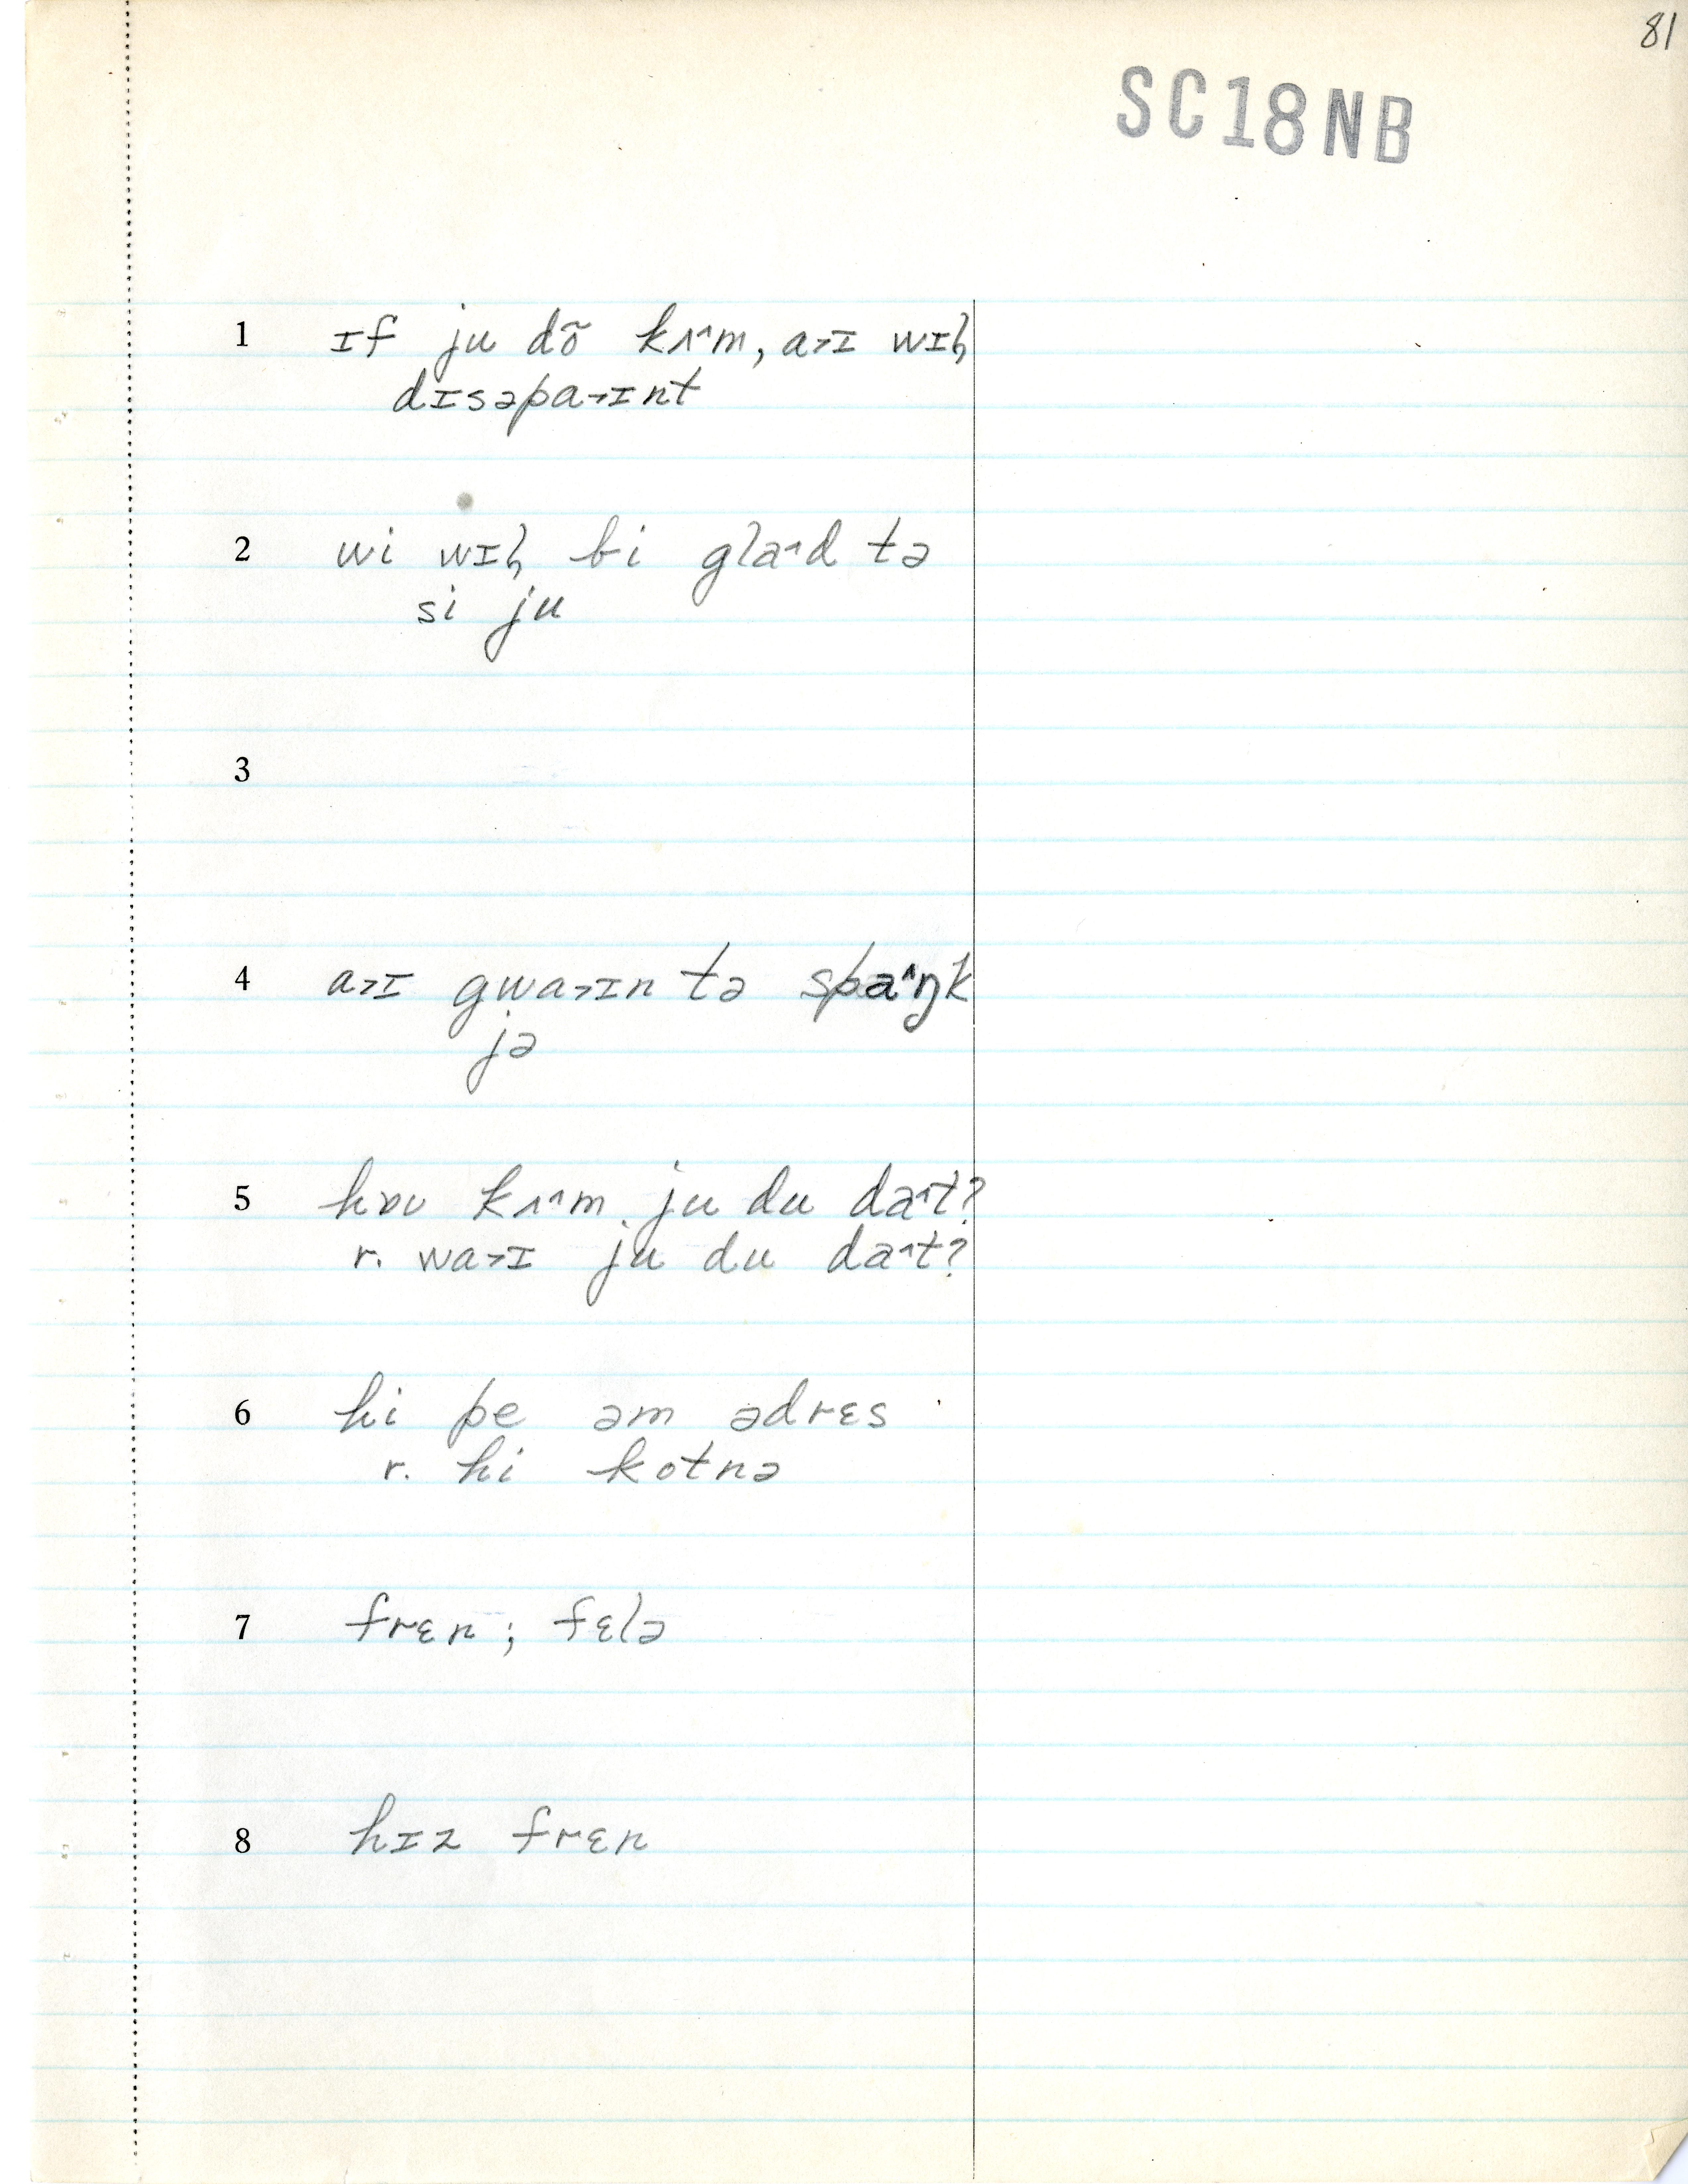 81
SC18NB
1 ɪf ju dõ kʌ˄m, a˃ɪ wɪl̩
dɪsəpa˃ɪnt
2 wi wɪl̩ bi gla˄d tə
si ju
3
4 a˃ɪ gwa˃ɪn tə spa˄ŋk
jə
5 hɒu kʌ˄m ju du da˄t?
r. wa˃ɪ ju du da˄t?
6 hi pe əm ədrɛs
r. hi kotnə
7 frɛn; fɛlə
8 hɪz frɛn